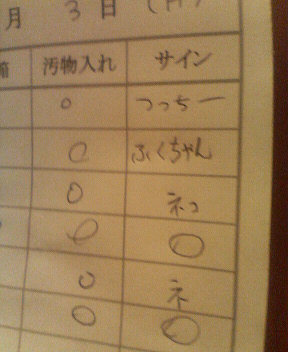 月 3 日 (
汚物入れ サイン
○ つっちー
○ ふくちゃん
○ ネコ
○ ○
○ ネ
○ ○